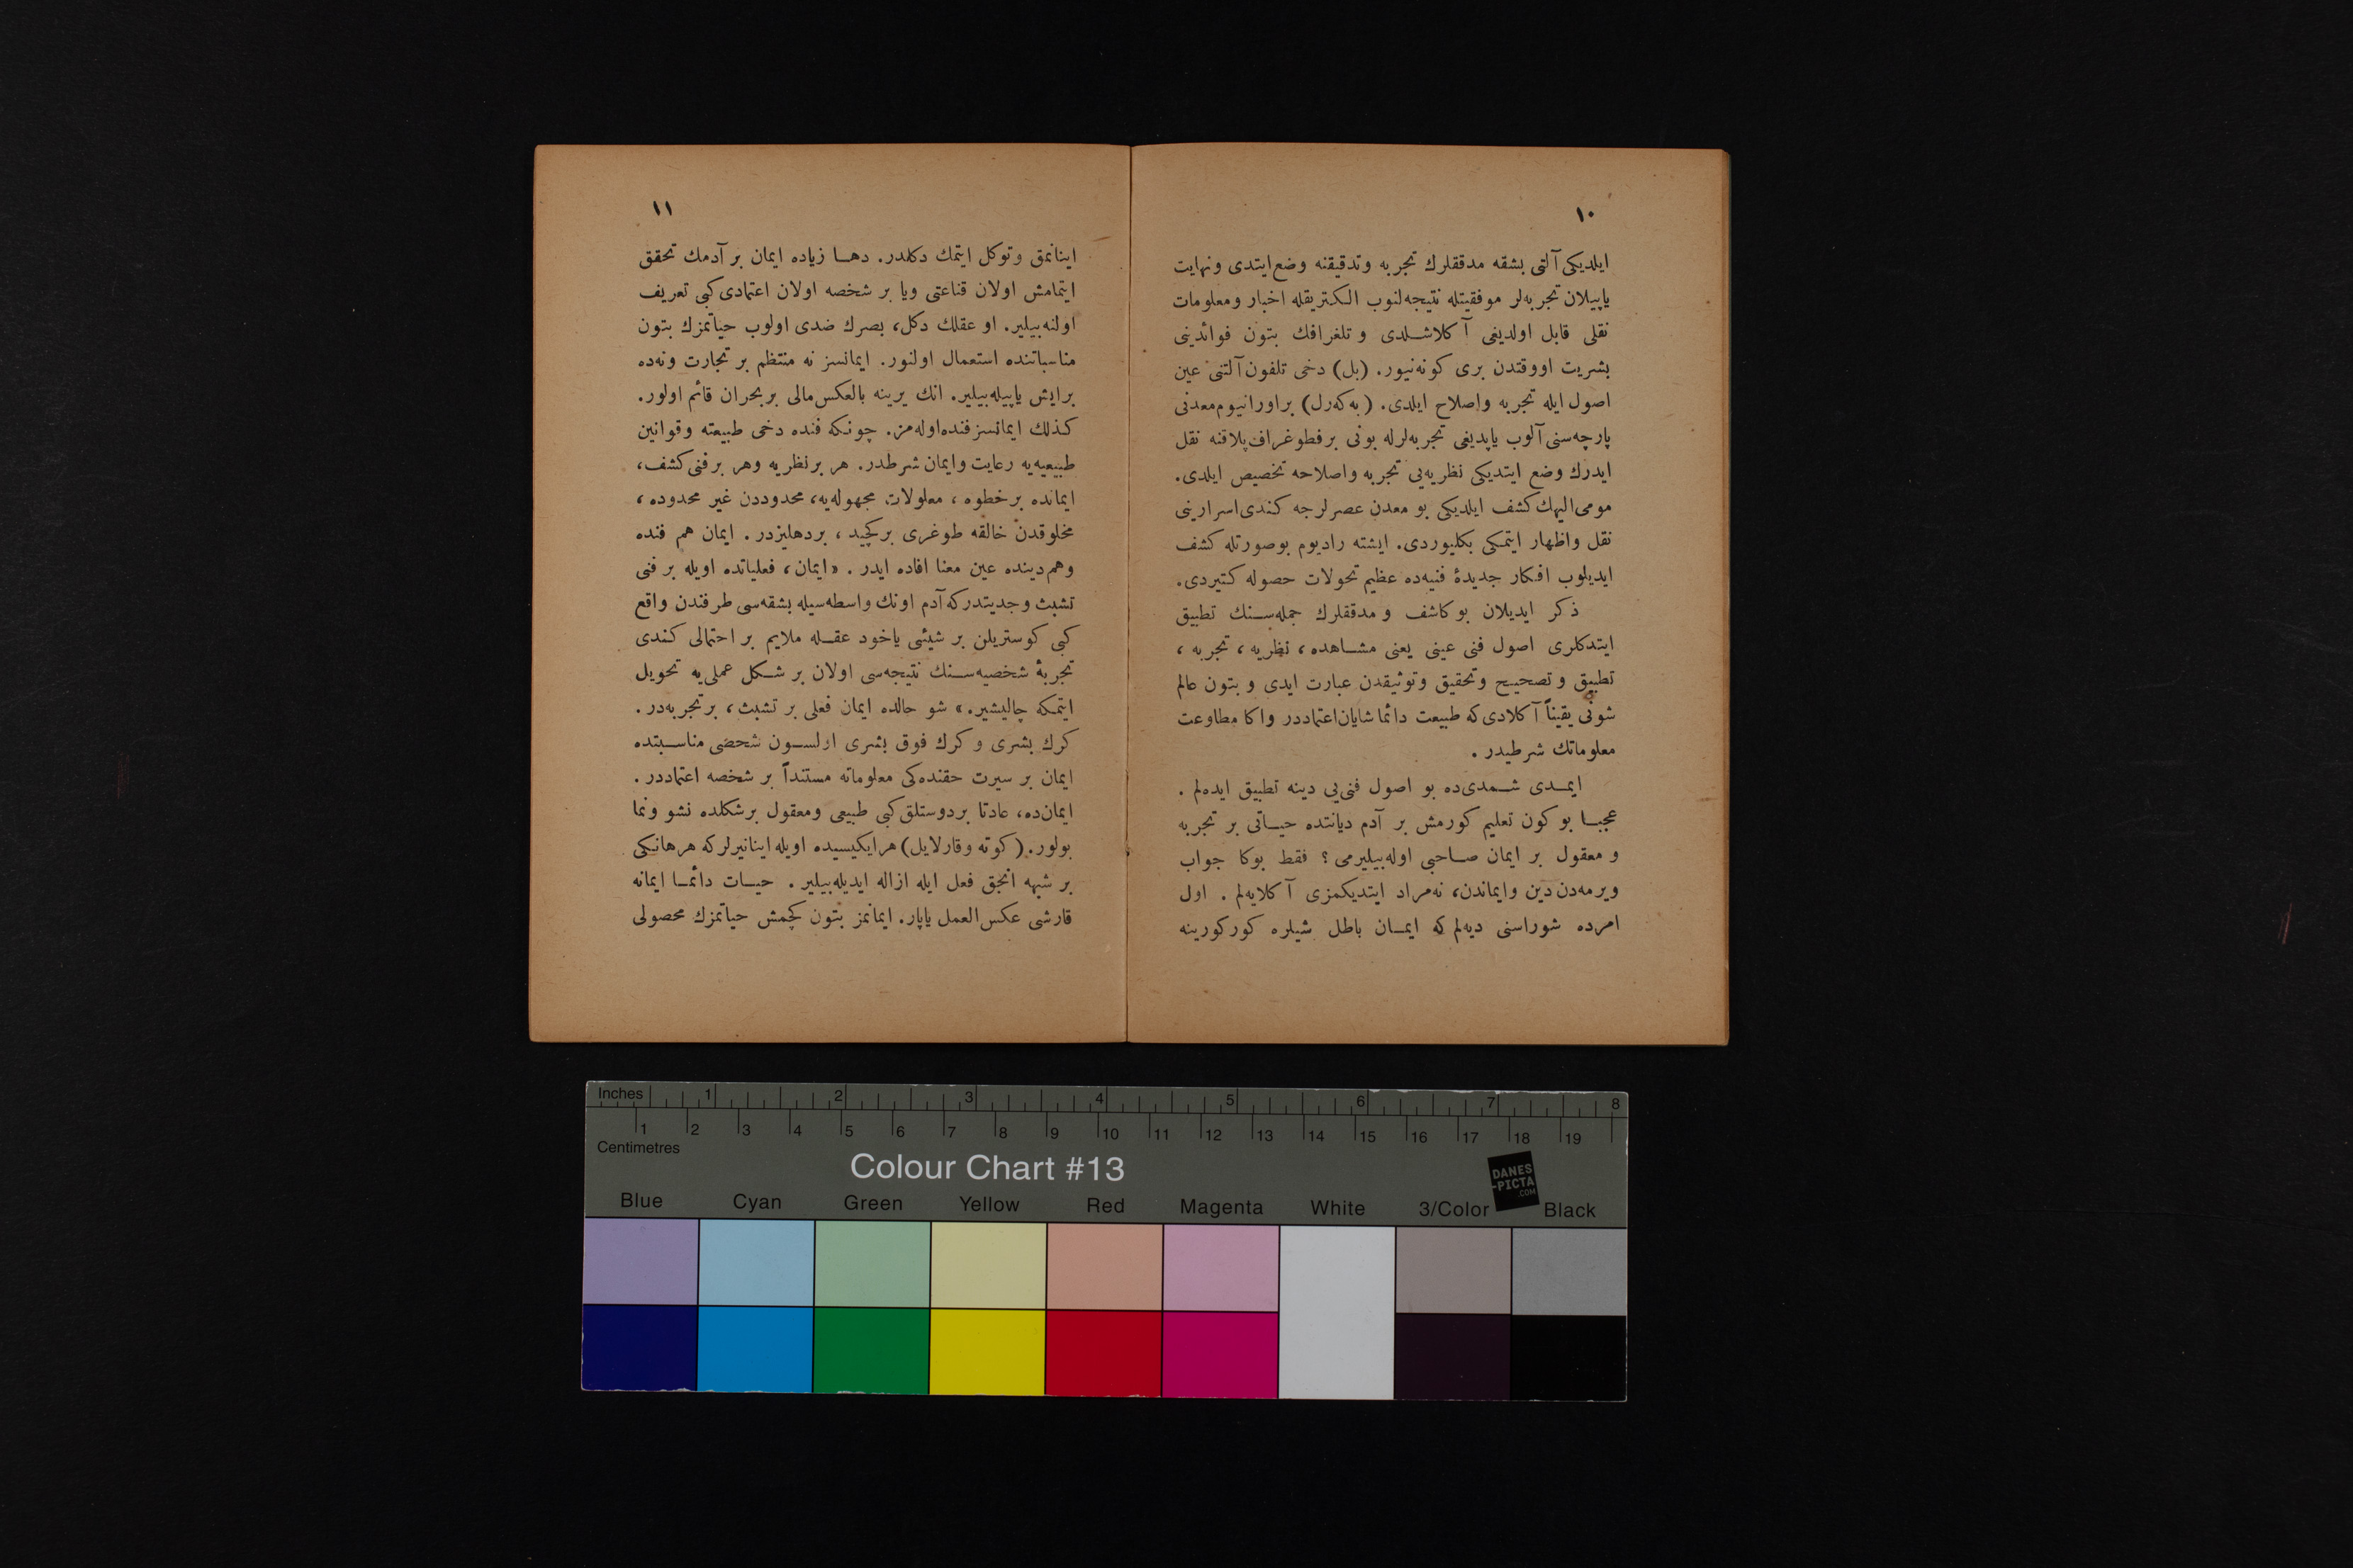 ١٠
ایلدیكی آلتی بشقه مدققلرك تجربه وتدقیقنه وضع ایتدی ونهایت
یاپیلان تجربه‌لر موفقیتله نتیجه‌لنوب الكتریقله اخبار ومعلومات
نقلی قابل اولدیغی آكلاشـلدی و تلغرافك بتون فوائدینی
بشریت اووقتدن بری كوزه‌نیور. (بل) دخی تلفون آلتنی عین
اصول ایله تجربه واصلاح ایلدی. (به‌كه‌رل) براورانیوم‌معدنی
پارچه‌سنی آلوب یاپدیغی تجربه‌لرله بونی برفطوغراف‌پلاقنه نقل
ایدرك وضع ایتدیكی نظریه‌یی تجربه واصلاحه تخصیص ایلدی.
مومی‌الیهك كشف ایلدیكی بو معدن عصرلرجه كندی‌اسرارینی
نقل واظهار ایتمكی بكلیوردی. ایشته رادیوم بوصورتله كشف
ایدیلوب افكار جدیدۀ فنیه‌ده عظیم تحولات حصوله كتیردی.
ذكر ایدیلان بوكاشف و مدققلرك جمله‌سـنك تطبیق
ایتدكلری اصول فنی عینی یعنی مشـاهده، نظریه، تجربه،
تطبیق و تصحیح وتحقیق وتوثیقدن عبارت ایدی و بتون عالم
شونی یقیناً آكلادی‌كه طبیعت دائما شایان‌اعتماددر واكا مطاوعت
معلوماتك شرطیدر.
ایمـدی شـمدی‌ده بو اصول فنی‌یی دینه تطبیق ایده‌لم.
عجبـا بوكون تعلیم كورمش بر آدم دیانتده حیـاتی بر تجربه
و معقول بر ایمان صـاحبی اوله‌بیلیرمی؟ فقط بوكا جواب
ویرمه‌دن دین وایماندن، نه‌مراد ایتدیكمزی آكلایه‌لم. اول
امرده شوراسنی دیه‌لم كه ایمـان باطل شیلره كوركورینه
١١
اینانمق وتوكل ایتمك دكلدر. دهـا زیاده ایمان بر آدمك تحقق
ایتمامش اولان قناعتی ویا بر شخصه اولان اعتمادی كبی تعریف
اولنه‌بیلیر. او عقلك دكل، بصرك ضدی اولوب حیاتمزك بتون
مناسباتنده استعمال اولنور. ایمانسز نه منتظم بر تجارت ونه‌ده
برایش یاپیله‌بیلیر. انك یرینه بالعكس‌مالی بربحران قائم اولور.
كـذلك ایمانسز فنده‌اوله‌مز. چونكه فنده دخی طبیعته وقوانین
طبیعیه‌یه رعایت وایمان شرطدر. هر برنظریه وهر برفنی‌كشف،
ایمانده برخطوه، معلولات مجهوله‌یه، محدوددن غیر محدوده،
مخلوقدن خالقه طوغری بركچید، بردهلیزدر. ایمان هم فنده
وهم‌دینده عین معنا افاده ایدر. «ایمان، فعلیاتده اویله بر فنی
تشبث وجدیتدركه آدم اونك واسطه‌سیله بشقه‌سی طرفندن واقع
كبی كوستریلن بر شیئی یاخود عقـله ملایم بر احتمالی كندی
تجربۀ شخصیه‌سـنك نتیجه‌سی اولان بر شـكل عملی‌یه تحویل
ایتمكه چالیشیر.» شو حالده ایمان فعلی بر تشبث، برتجربه‌در.
كرك بشری و كرك فوق بشری اولسـون شخصی مناسـبتده
ایمان بر سیرت حقنده‌كی معلوماته مستنداً بر شخصه اعتماددر.
ایمان‌ده، عادتا بردوستلق‌كبی طبیعی ومعقول برشكلده نشو ونما
بولور. (كوته وقارلایل) هرایكیسیده اویله‌اینانیرلركه هرهانكی
بر شبهه انجق فعل ایله ازاله ایدیله‌بیلیر. حیـات دائمـا ایمانه
قارشی عكس‌العمل یاپار. ایمانمز بتون كچمش حیاتمزك محصولی
Inches 1 2 3 4 5 6 7 8
1 2 3 4 5 6 7 8 9 10 11 12 13 14 15 16 17 18 19
Centimetres
Colour Chart #13
DANES
-PICTA
.COM
Blue Cyan Green Yellow Red Magenta White 3/Color Black